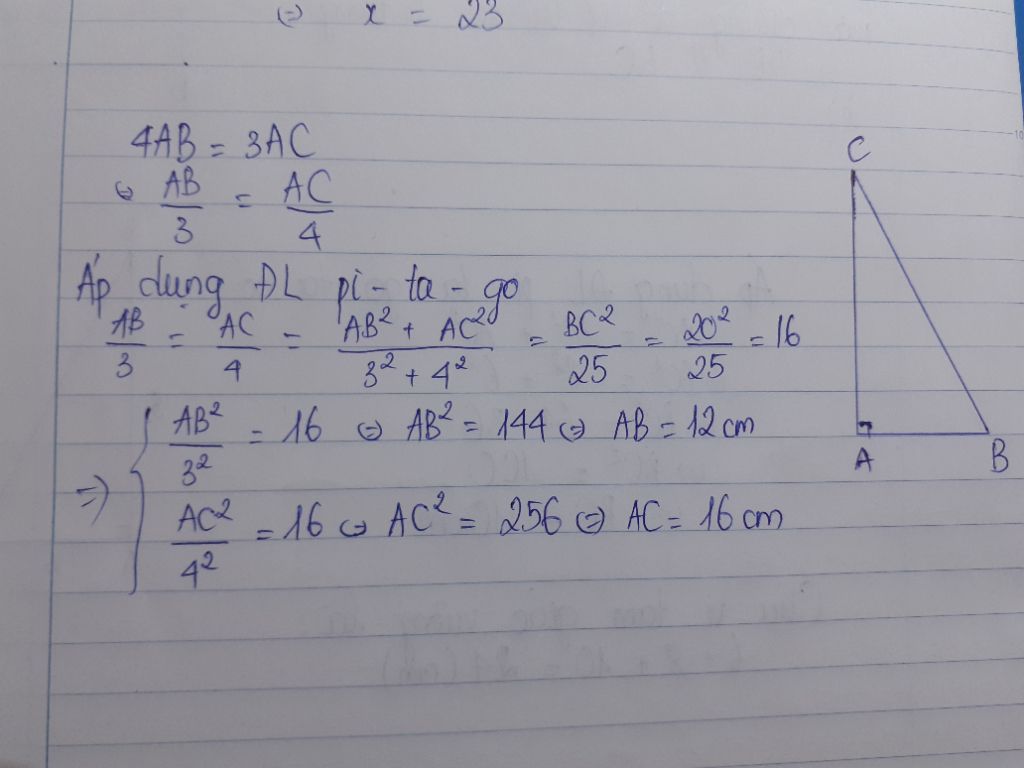 ⇔ x = 23
4AB = 3AC
⇔ AB/3 = AC/4
Áp dụng ĐL pi-ta-go
AB/3 = AC/4 = (AB² + AC²)/(3² + 4²) = BC²/25 = 20²/25 = 16
⇒ { AB²/3² = 16 ⇔ AB² = 144 ⇔ AB = 12cm
AC²/4² = 16 ⇔ AC² = 256 ⇔ AC = 16cm
C
A
B